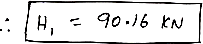 ∴ H₁ = 90.16 KN